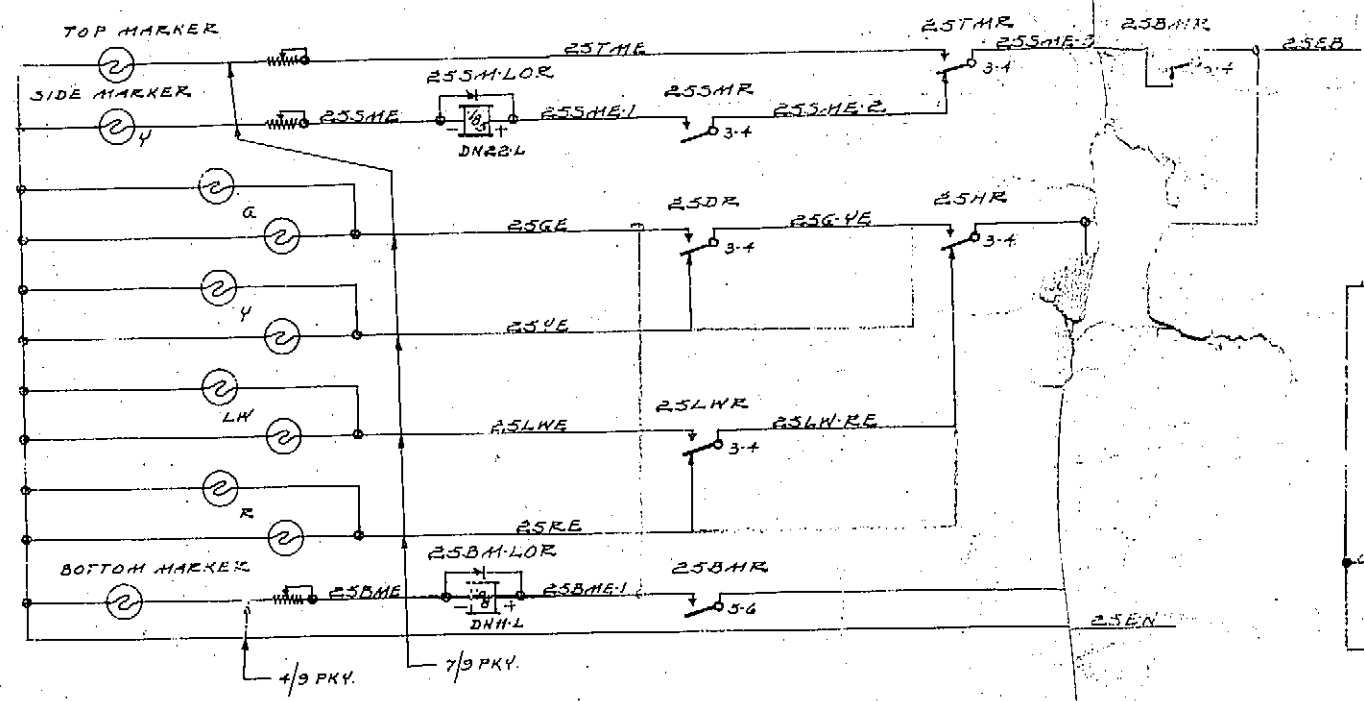 TOP MARKER
25TME
25TMR
3-4
25SME-3
25BMR
25EB
SIDE MARKER
Y
25SME
25SM-LOR
- +
DN22-L
25SME-1
25SMR
3-4
25SME-2
G
25GE
25DR
3-4
25G-YE
25HR
3-4
Y
25YE
LW
25LWE
25LWR
3-4
25LW-RE
R
25RE
BOTTOM MARKER
25BME
25BM-LOR
- +
DN11-L
25BME-1
25BMR
5-6
25EN
4/9 PKY.
7/9 PKY.